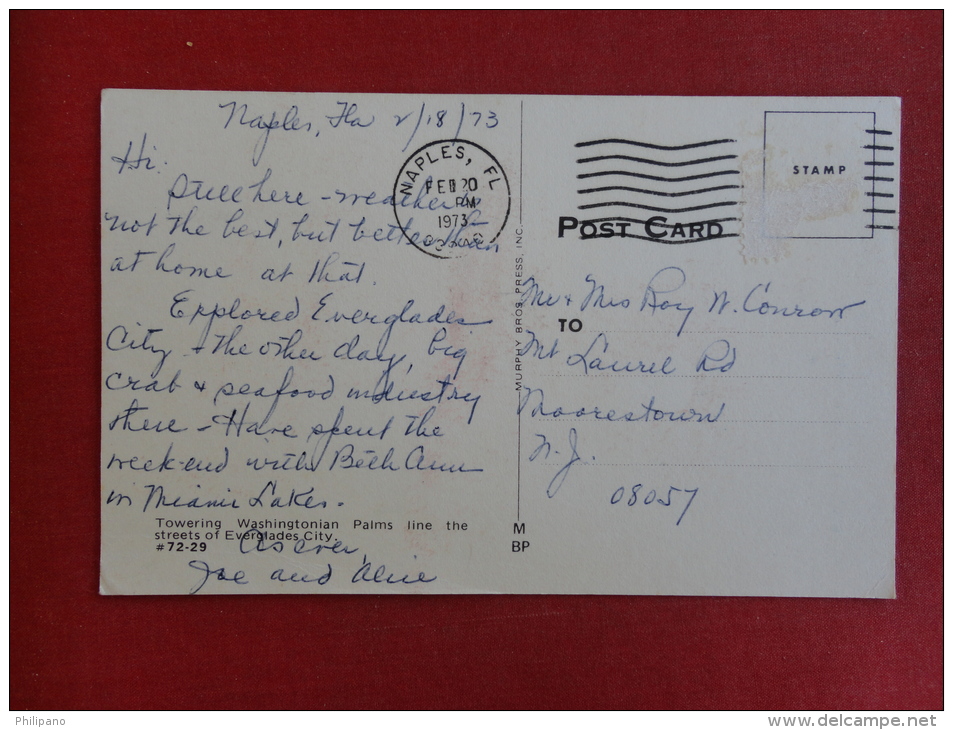 Naples, Fla 2/18/73
Hi.
Still here - weather is
not the best, but better than
at home at that.
Explored Everglades
City - the other day, big
crab & seafood industry
there - Have spent the
week-end with Beth Ann
in Miami Lakes.
As ever,
Joe and
Towering Washingtonian Palms line the
streets of Everglades City.
#72-29
NAPLES, FL
FEB 20
PM
1973
MURPHY BROS. PRESS, INC.
M
BP
STAMP
POST CARD
TO
Mr & Mrs Roy W. Conrow
Mt Laurel Rd
Moorestown
N.J.
08057
Philipano
delcampe.net